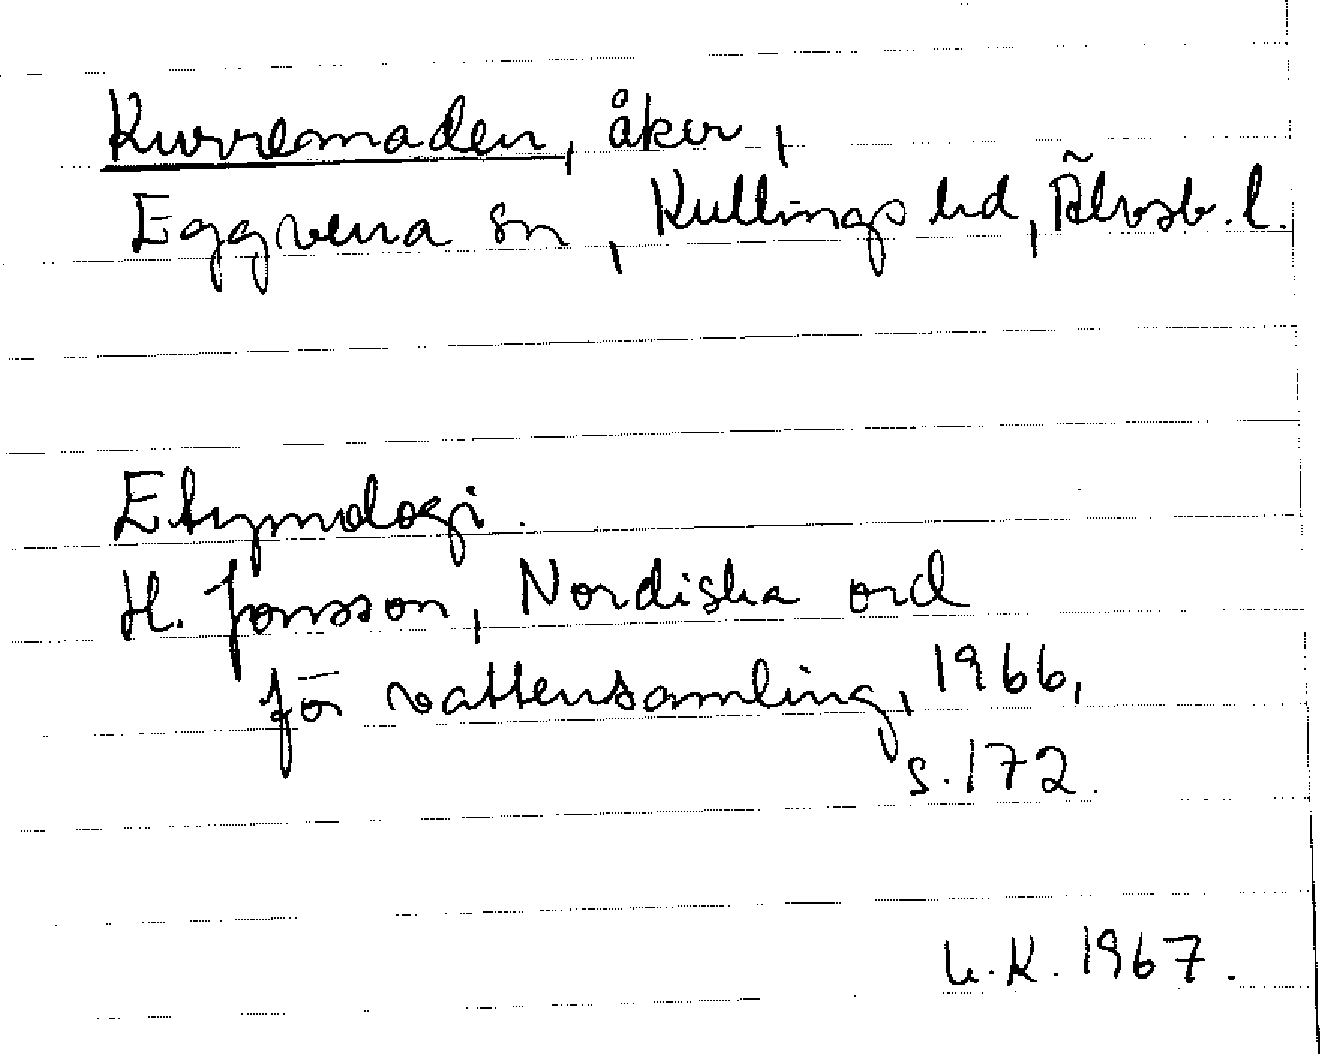 Kurremaden, åker,
Eggvena sn, Kullings hd, Älvsb. l.
Etymologi.
H. Jonsson, Nordiska ord
för vattensamling, 1966,
s. 172.
L.K. 1967.